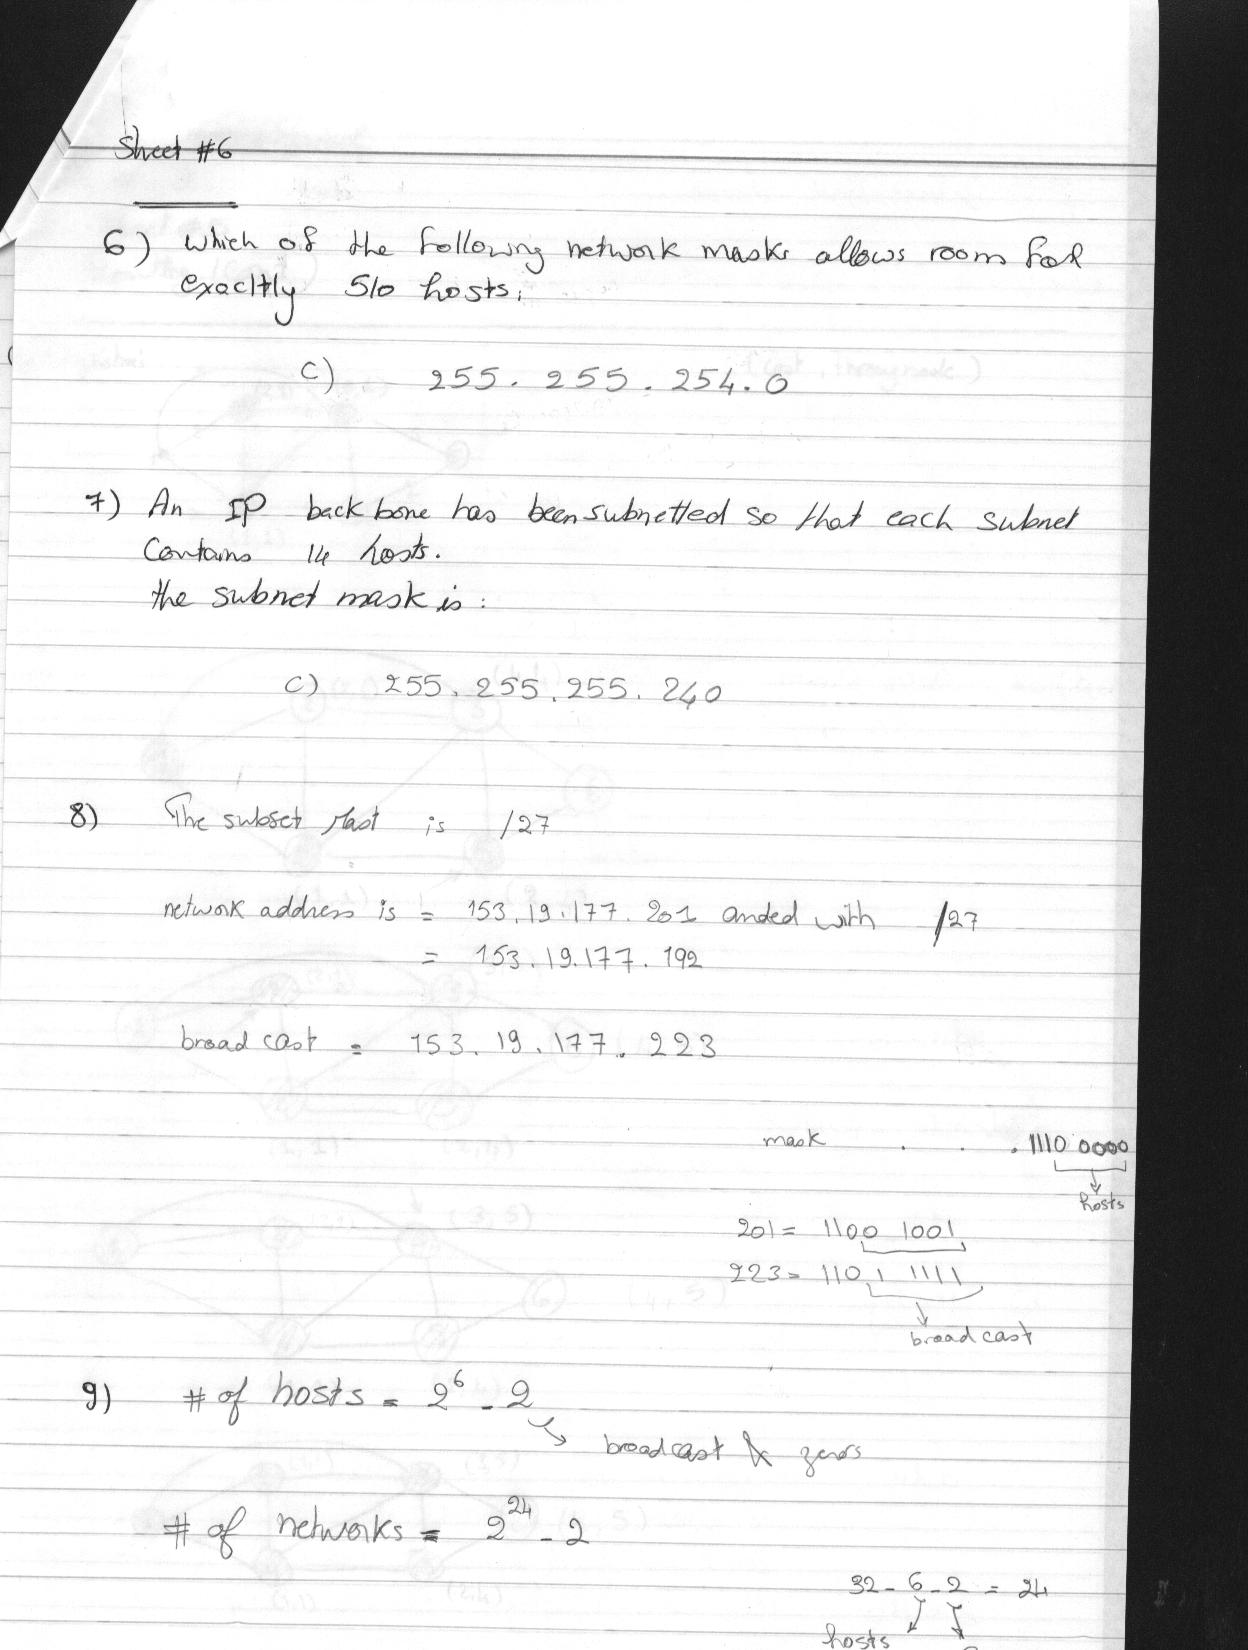 Sheet #6
6) which of the following network masks allows room for
exacltly 510 hosts:
c) 255.255.254.0
7) An IP back bone has been subnetted so that each subnet
contains 14 hosts.
the subnet mask is:
c) 255.255.255.240
8) The subset Mast is /27
network address is = 153.19.177.201 anded with /27
= 153.19.177.192
broad cast = 153.19.177.223
mask . . . 1110 0000
hosts
201 = 1100 1001
223 = 1101 1111
broad cast
9) # of hosts = 2^6 - 2
broadcast & zeros
# of networks = 2^24 - 2
32 - 6 - 2 = 24
hosts